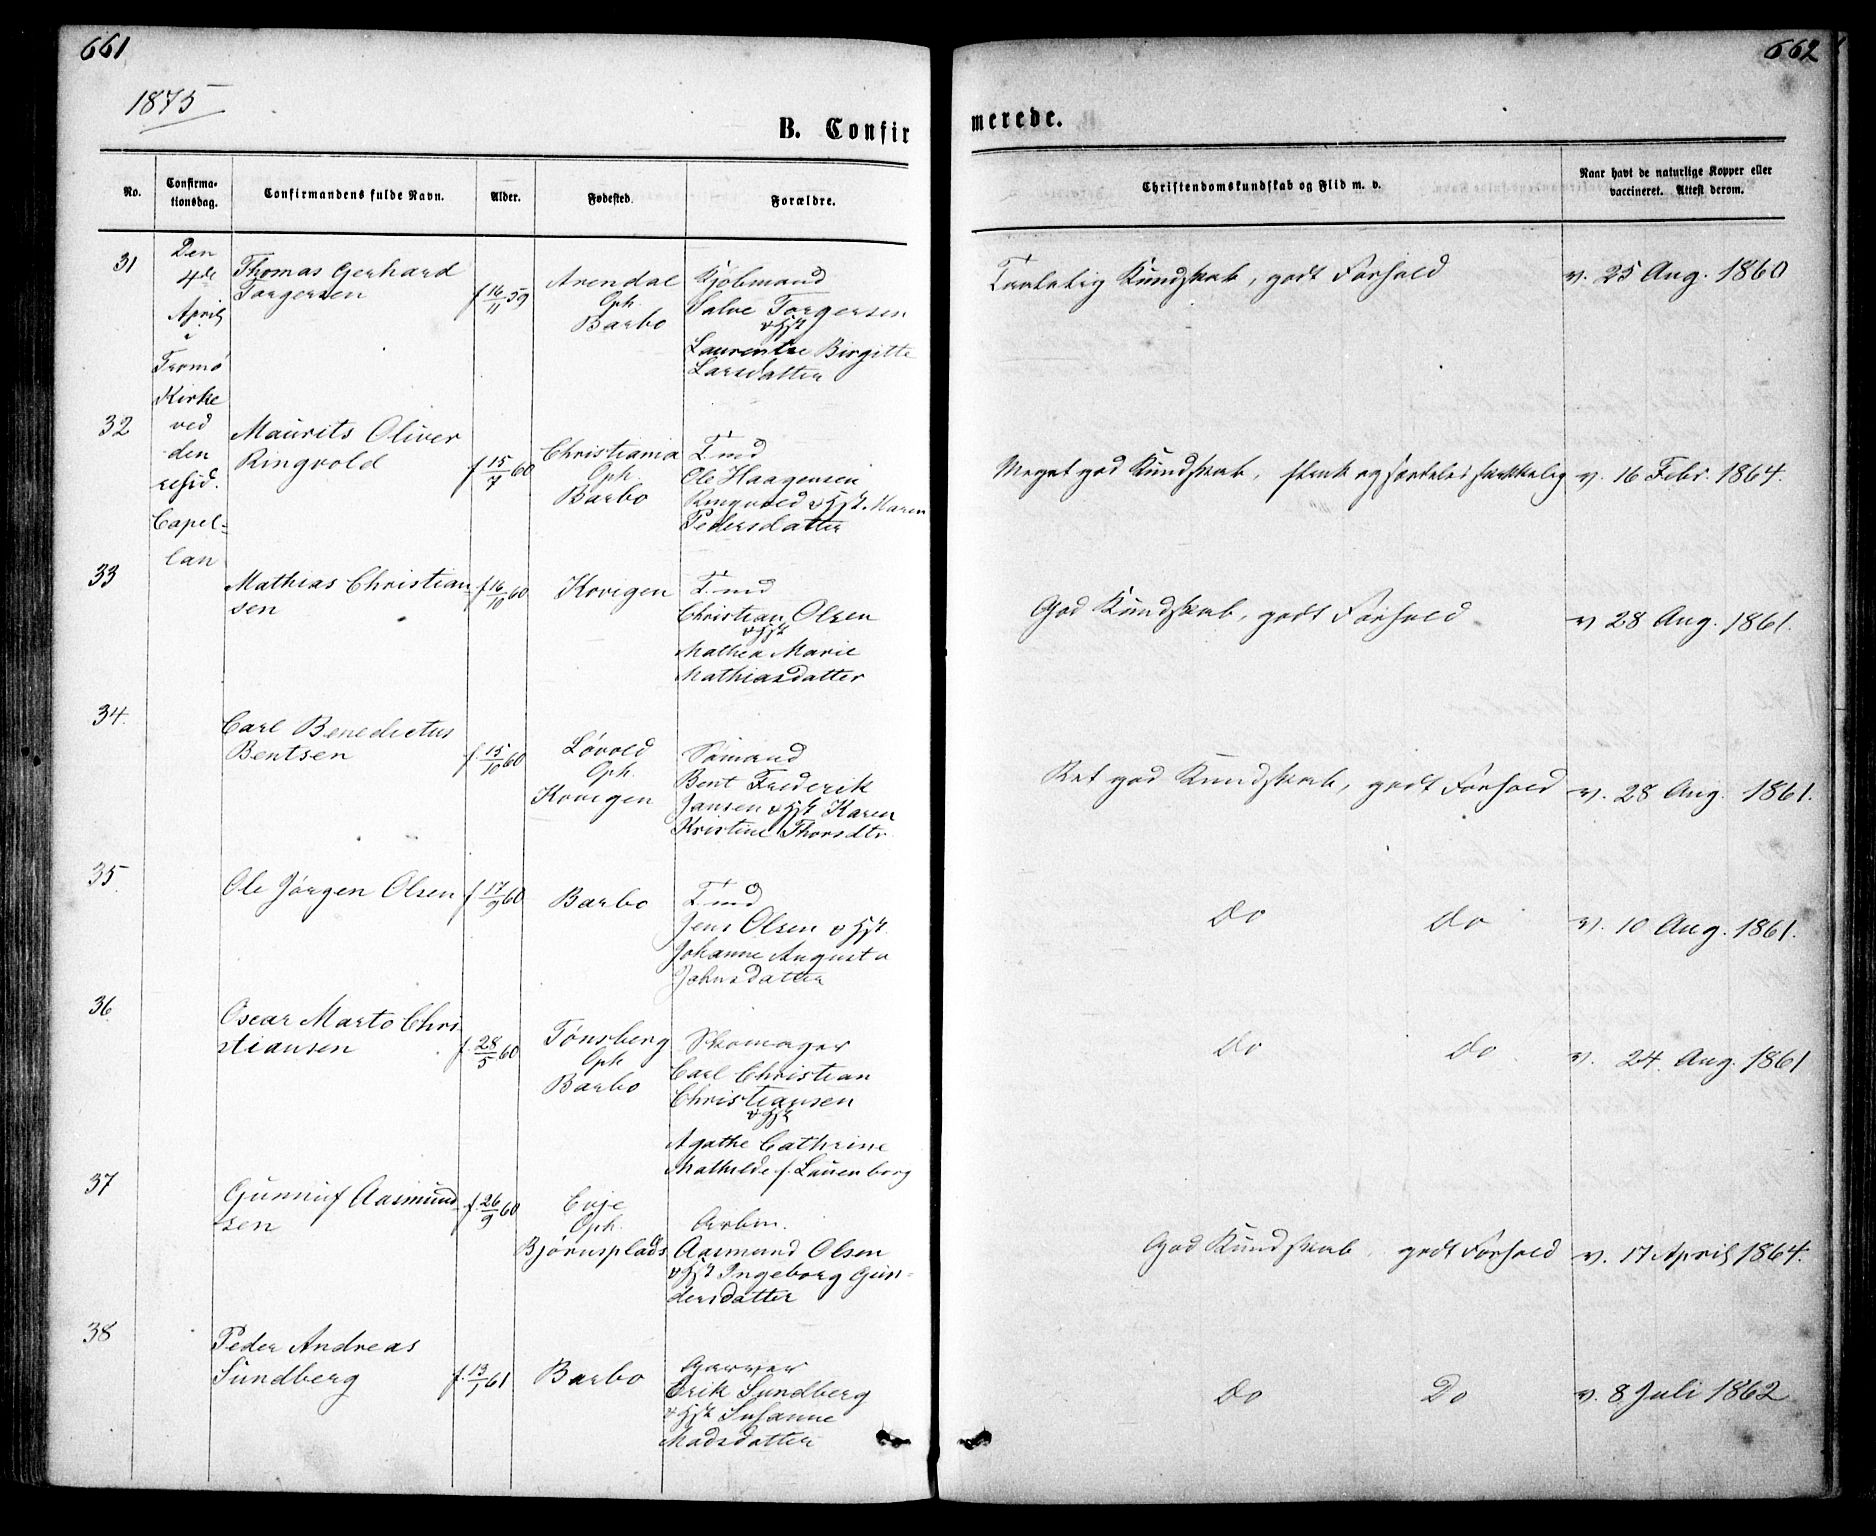 661
662
1875
B. Confirmerede.
No.
Confirma-
tionsdag.
Confirmandens fulde Navn.
Alder.
Fødested.
Forældre.
Christendomskundskab og Flid m. v.
Naar havt de naturlige Kopper eller
vaccineret. Attest derom.
Den
4de
April
i
Tromø
Kirke
ved
den
resid.
Capel-
lan
31
Thomas Gerhard
Torgersen
f 16/11 59
Arendal
Oph.
Barbo
Kjøbmand
Salve Torgersen
o Hst
Laurentze Birgitte
Larsdatter
Taalelig Kundskab, godt Forhold
v. 25 Aug. 1860
32
Maurits Oliver
Ringvold
f 15/7 60
Christiania
Oph.
Barbo
Tmd
Ole Haagensen
Ringvold o Hst. Maren
Pedersdatter
Meget god Kundskab,
v. 16 Febr. 1864.
33
Mathias Christian-
sen
f. 16/10 60
Kovigen
Tmd
Christian Olsen
o Hst
Mathea Marie
Mathiasdatter
God Kundskab, godt Forhold
v 28 Aug. 1861.
34.
Carl Benedictus
Bentsen
f. 15/10 60
Løvold
Oph.
Kovigen
Sømand
Bent Frederik
Jansen o Hst Karen
Kristine Thorsdtr.
Ret god Kundskab, godt Forhold
v. 28 Aug. 1861.
35.
Ole Jørgen Olsen
f 17/9 60
Barbo
Tmd
Jens Olsen o Hst.
Johanne Augusta
Johnsdatter
Do Do
v. 10 Aug. 1861.
36.
Oscar Marto Chri-
stiansen
f. 28/5 60
Tønsberg
Oph
Barbo
Skomager
Carl Christian
Christiansen
o Hst
Agathe Cathrine
Mathilde f. Lauenborg
Do Do
v. 24. Aug. 1861
37
Gunnuf Aasmund-
sen
f. 26/9 60
Evje
Oph.
Bjørnsplads
Arbm.
Aasmund Olsen
o Hst Ingeborg Gun-
dersdatter
God Kundskab, godt Forhold
v. 17 April 1864.
38
Peder Andreas
Sundberg
f. 13/1 61
Barbo
Garver
Erik Sundberg
o Hst Susanne
Madsdatter
Do Do
v. 8 Juli 1862